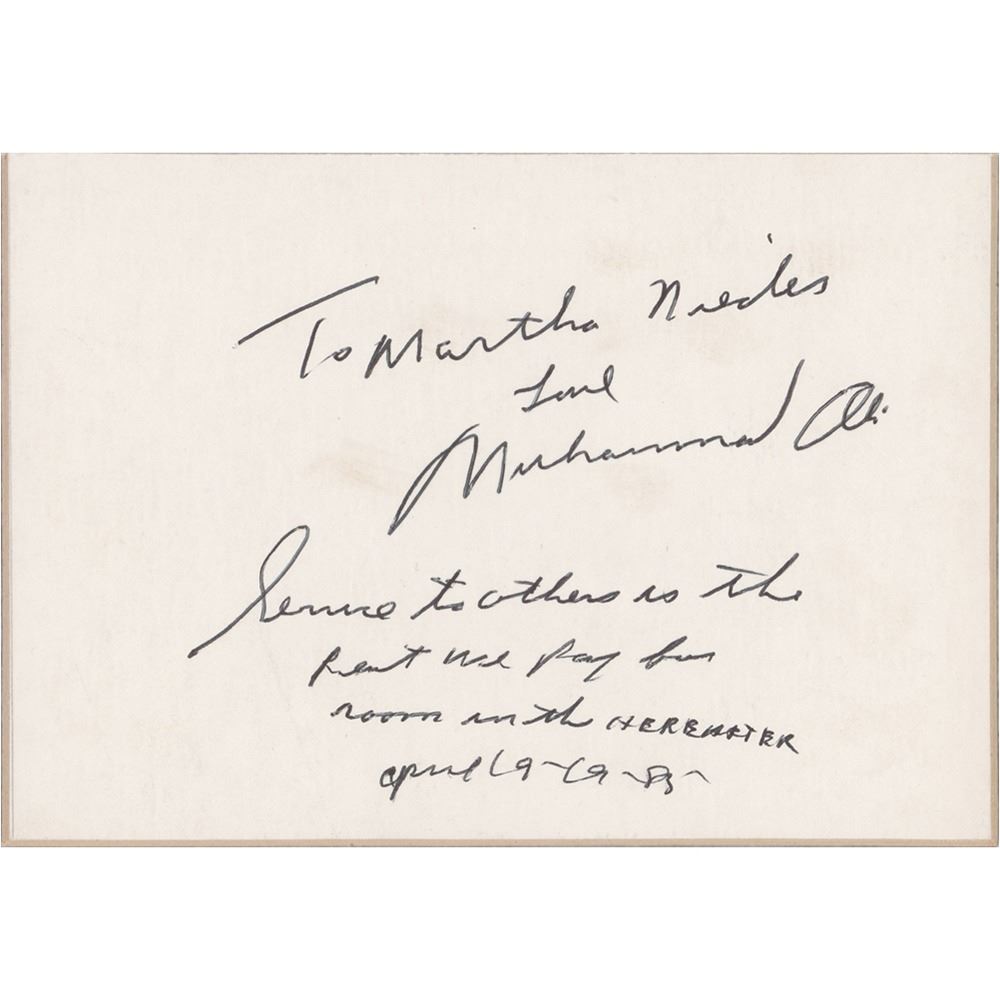 To Martha Niedes
Love
Muhammad Ali
Service to others is the
Rent we pay for
room in the HEREAFTER
april 19-19-85-